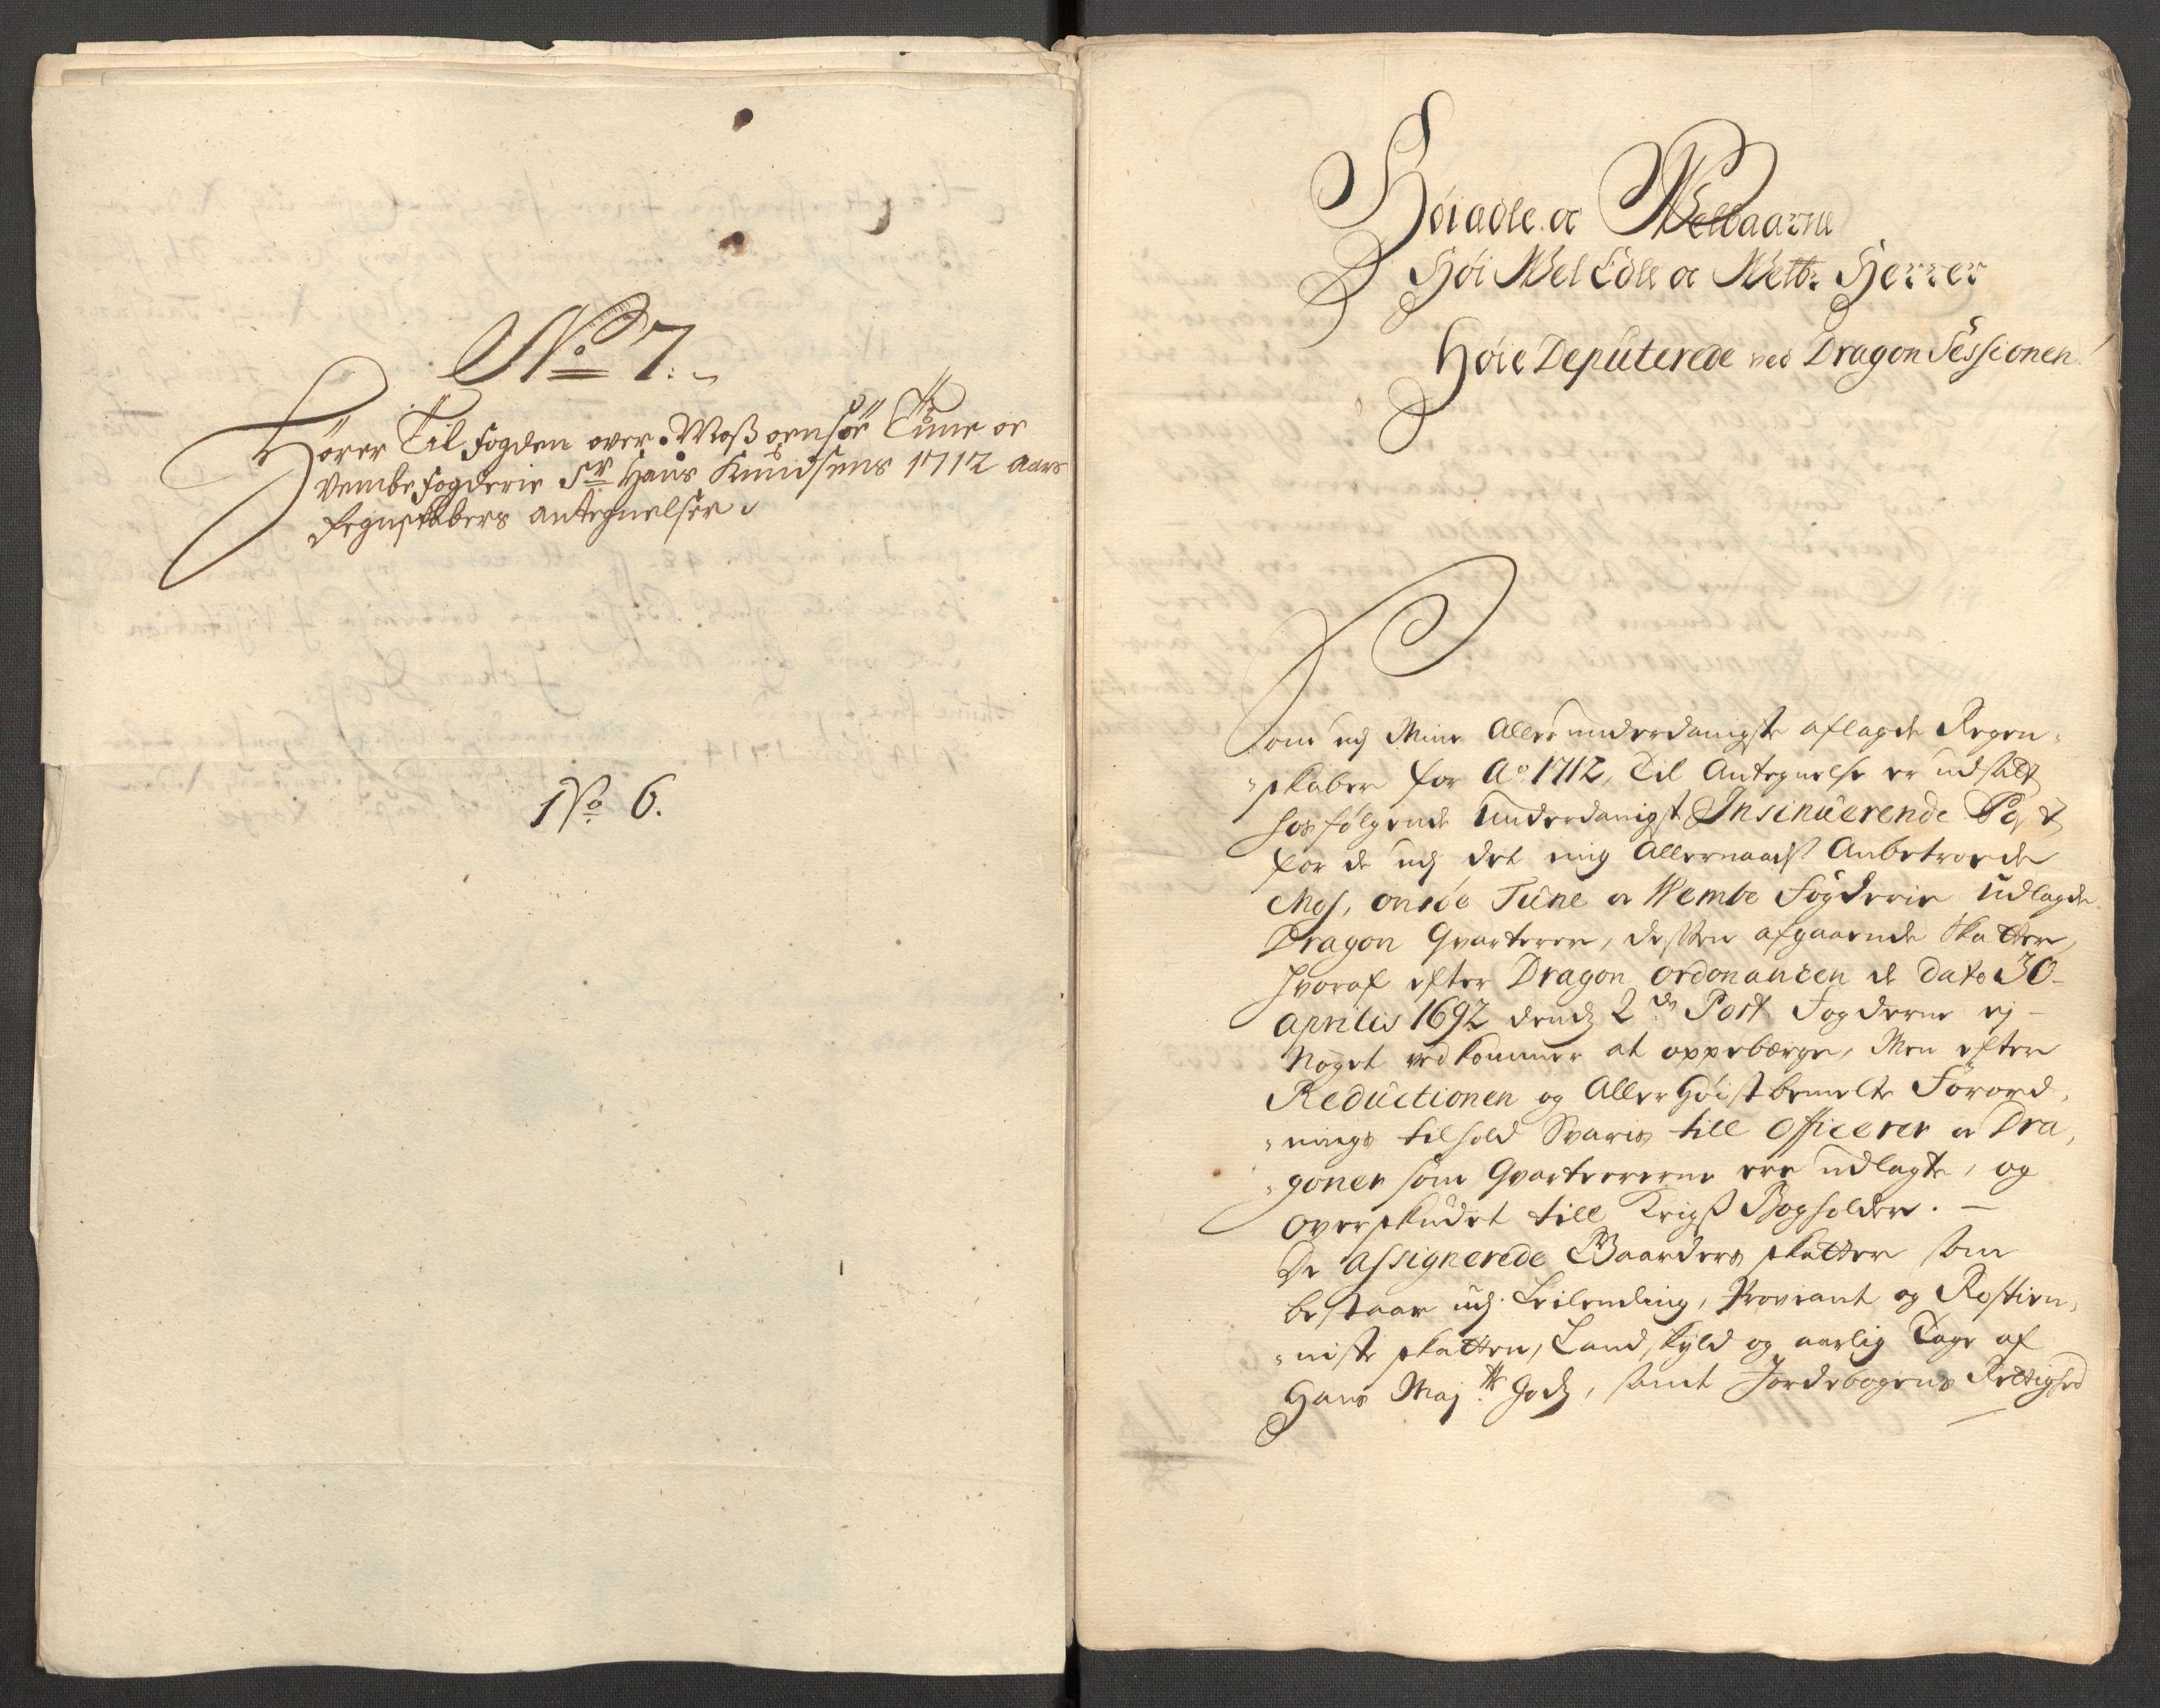 No 7.
Hører Til fogden over Moss onsøe Tune oc
Vembe fogderie Sr Hans Knudsens 1712 Aars
Regnskabers antegnelser
No 6.
Høiædle oc Welbaarne
Høi Wel Edle oc Welbr Herrer
Høie Deputerede ved Dragon Sessionen
Som udj Mine Allerunderdanigste aflagde Regen-
skaber for Ao 1712, Til Antegnelse er udsatt
hosfølgende Underdanigst Insinuerende Post
for de udj det mig Allernaadst Anbetroede
Mos, onsøe Tune oc Wembe Fogderie Udlagde
Dragon Qvarterer, dessen afgaaende Skatter,
hvoraf efter Dragon ordonancen de dato 30
aprilis 1692 dend 2den Post Fogderne ej
Noget vedkommer at oppebærge, Men efter
Reductionen og Aller Høist bemelte Forord-
nings tilhold Svaris till Officerer oc Dra-
goner som Qvartererne ere udlagte, og
overskudet till Krigs Bogholder.
De Assignerede Gaarders skatter som
bestaar udj Leilending, Proviant og Rostien-
niste skatten, Landskyld og aarlig Tage af
Hans Majts Gods, samt Jordebogens Rettighed